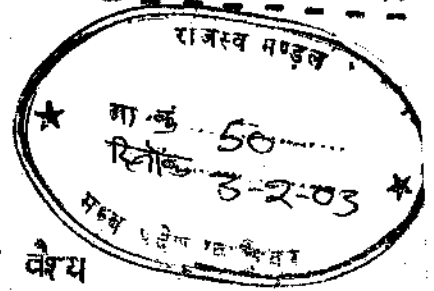 राजस्व मण्डल
मा.क्रं 50
दिनाँक 3-2-03
मध्य प्रदेश
वैश्य